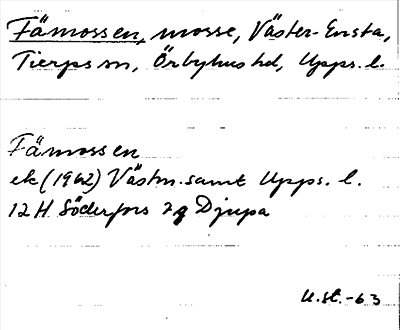 Fämossen, mosse, Väster-Ensta,
Tierps sn, Örbyhus hd, Upps. l.
Fämossen
ek (1962) Västm. samt Upps. l.
12 H Söderfors 7 g Djupa
U.st.-63